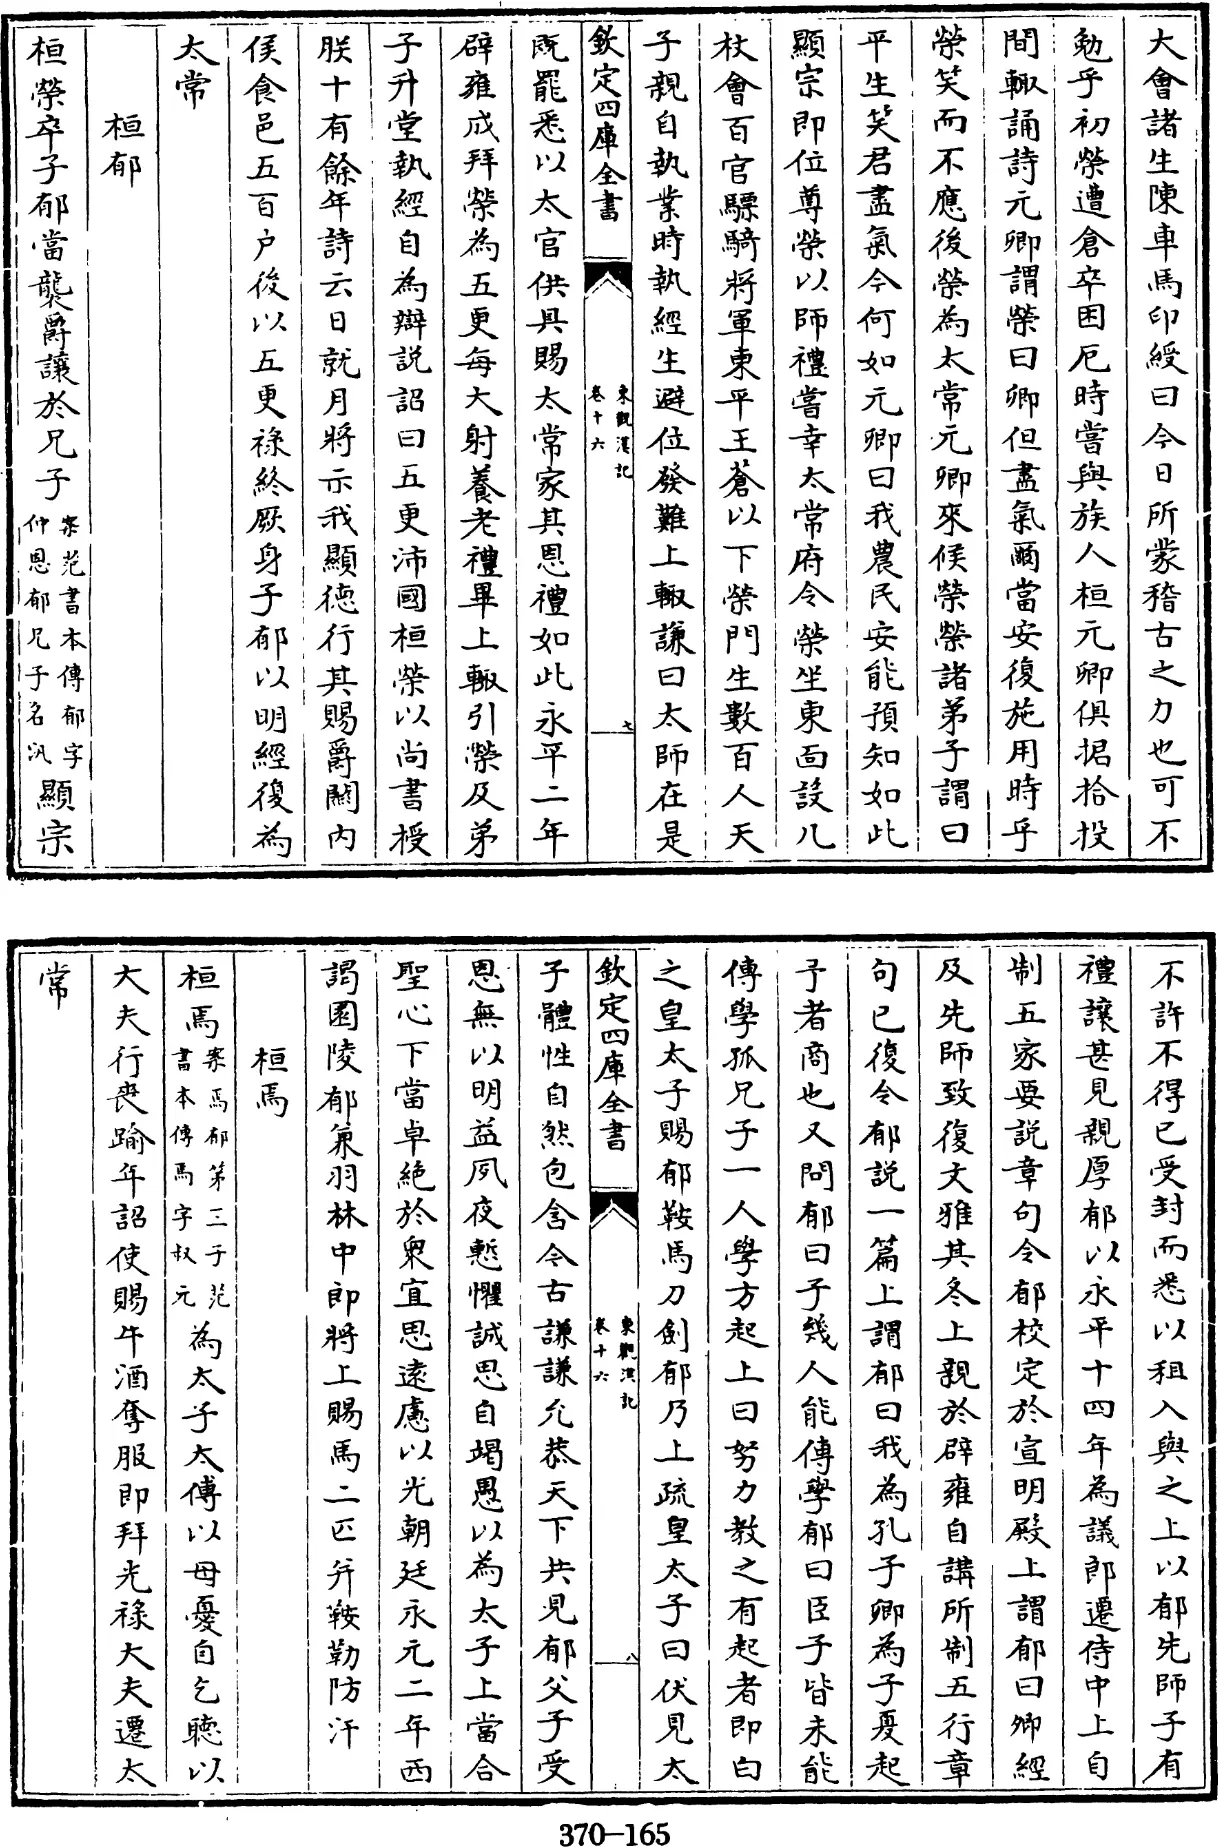 大會諸生陳車馬印綬曰今日所蒙稽古之力也可不
勉乎初榮遭倉卒困厄時嘗與族人桓元卿俱捃拾投
間輙誦詩元卿謂榮曰卿但盡氣爾當安復施用時乎
榮笑而不應後榮為太常元卿來候榮榮諸弟子謂曰
平生笑君盡氣今何如元卿曰我農民安能預知如此
顯宗即位尊榮以師禮嘗幸太常府令榮坐東面設几
杖會百官驃騎將軍東平王蒼以下榮門生數百人天
子親自執業時執經生避位發難上輙謙曰太師在是
欽定四庫全書
東觀漢記
卷十六
七
既罷悉以太官供具賜太常家其恩禮如此永平二年
辟雍成拜榮為五更每大射養老禮畢上輙引榮及弟
子升堂執經自為辯説詔曰五更沛國桓榮以尚書授
朕十有餘年詩云日就月將示我顯德行其賜爵關内
侯食邑五百户後以五更祿終厥身子郁以明經復為
太常
桓郁
桓榮卒子郁當襲爵讓於兄子案范書本傳郁字仲恩郁兄子名汎顯宗
不許不得已受封而悉以租入與之上以郁先師子有
禮讓甚見親厚郁以永平十四年為議郎遷侍中上自
制五家要説章句令郁校定於宣明殿上謂郁曰卿經
及先師致復文雅其冬上親於辟雍自講所制五行章
句已復令郁説一篇上謂郁曰我為孔子卿為子夏起
予者商也又問郁曰子幾人能傳學郁曰臣子皆未能
傳學孤兄子一人學方起上曰努力教之有起者即白
之皇太子賜郁鞍馬刀劍郁乃上疏皇太子曰伏見太
欽定四庫全書
東觀漢記
卷十六
八
子體性自然包含今古謙謙允恭天下共見郁父子受
恩無以明益夙夜慙懼誠思自竭愚以為太子上當合
聖心下當卓絶於衆宜思遠慮以光朝廷永元二年西
謁園陵郁兼羽林中郎將上賜馬二匹并鞍勒防汗
桓焉
桓焉案焉郁第三子范書本傳焉字叔元為太子太傅以母憂自乞聽以
大夫行喪踰年詔使賜牛酒奪服即拜光祿大夫遷太
常
370-165